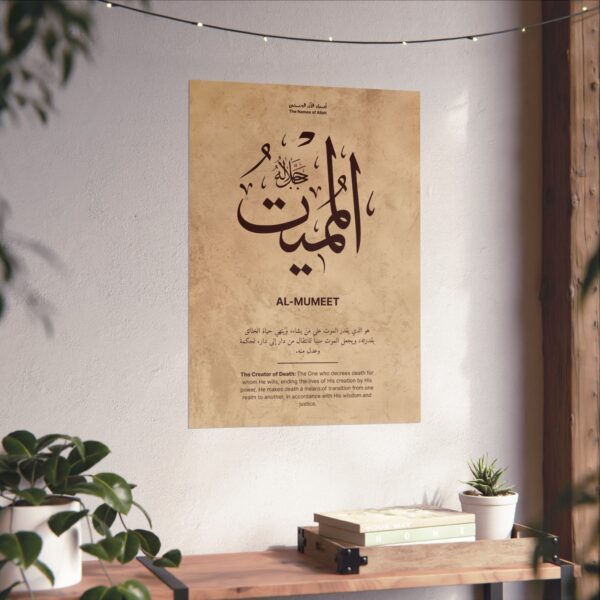 أسماء الله الحسنى
The Names of Allah
المميت
جل جلاله
AL-MUMEET
هو الذي يقدر الموت على من يشاء، ويُنهي حياة الخلائق
بقدرته، ويجعل الموت سببًا للانتقال من دار إلى دار، لحكمة
وعدل منه.
The Creator of Death: The One who decrees death for
whom He wills, ending the lives of His creation by His
power. He makes death a means of transition from one
realm to another, in accordance with His wisdom and
justice.
HOME